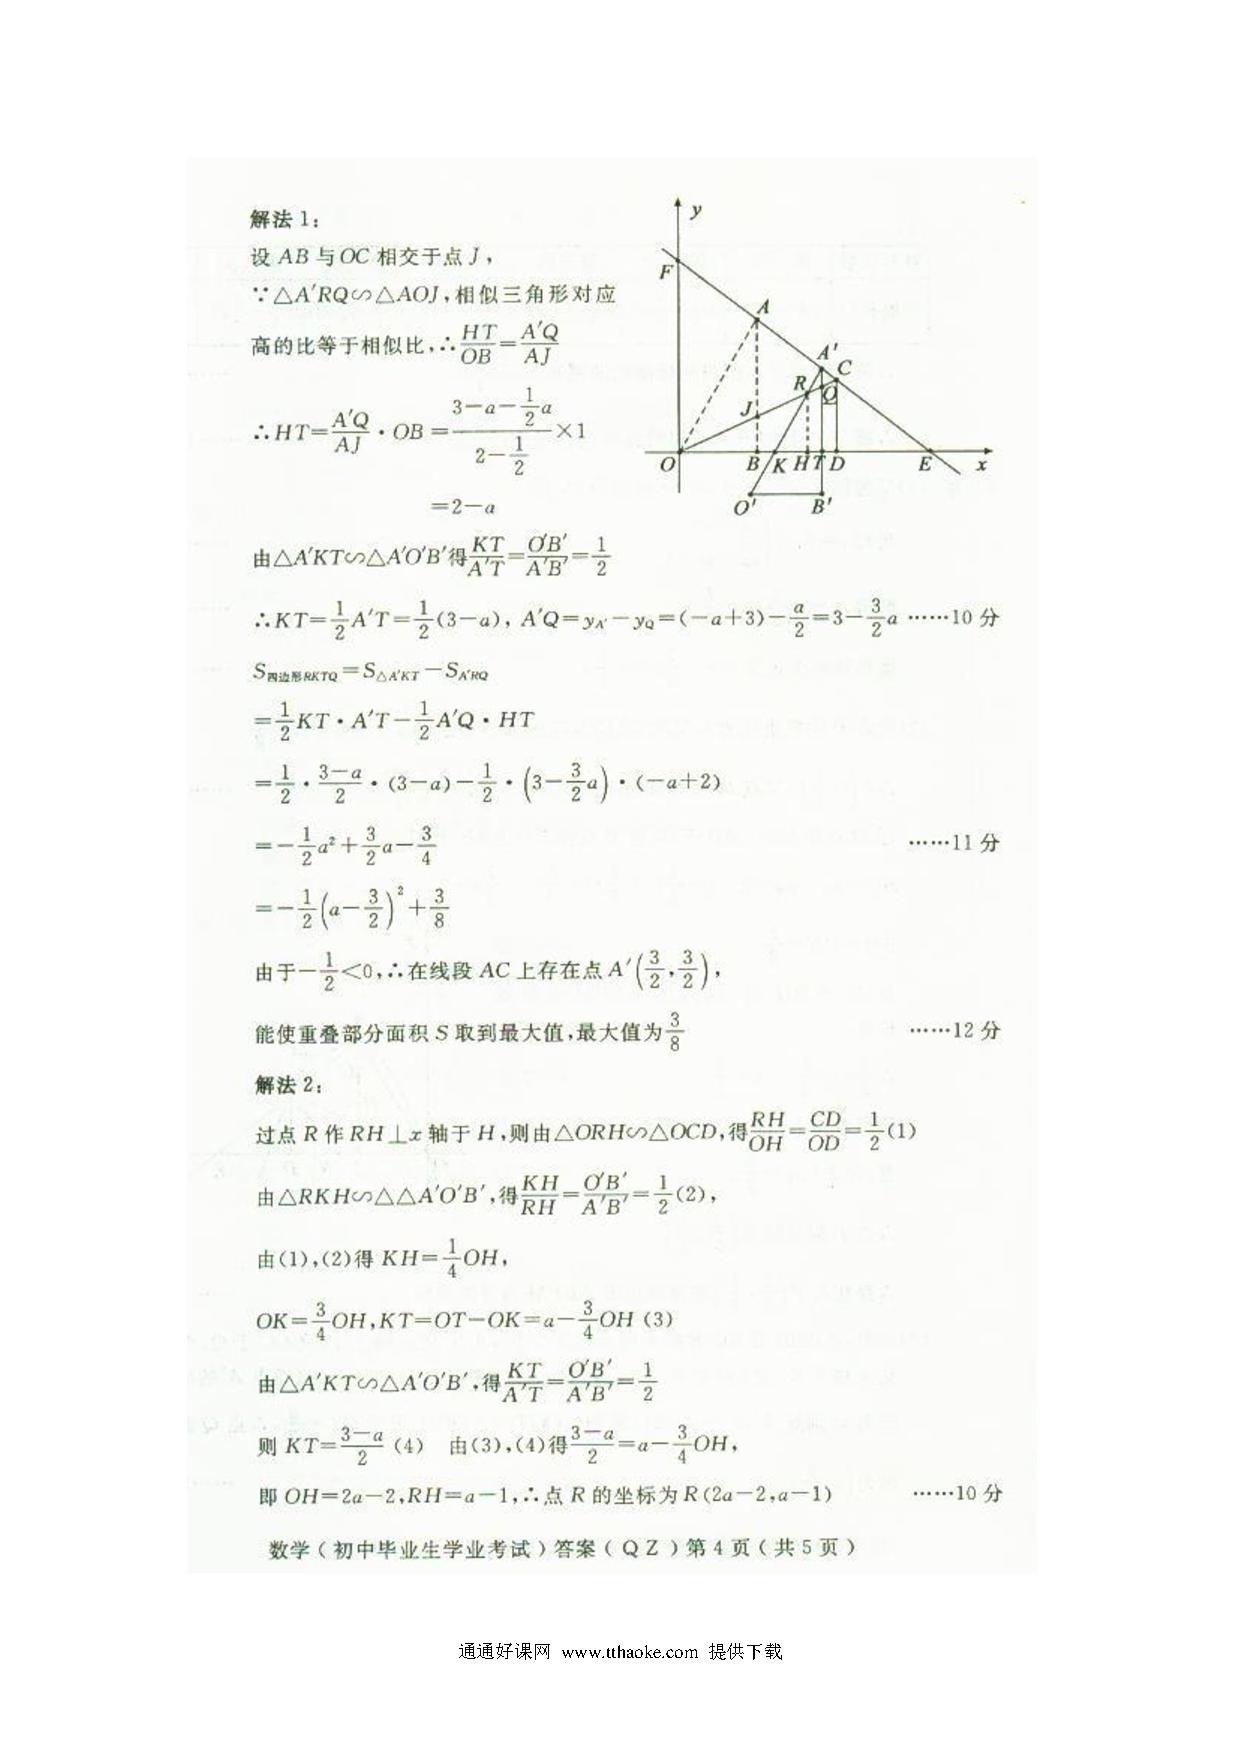 解法1:
设AB与OC相交于点J,
∵△A′RQ∽△AOJ,相似三角形对应
高的比等于相似比,∴HT/OB=A′Q/AJ
∴HT=A′Q/AJ·OB=(3-a-1/2a)/(2-1/2)×1
=2-a
由△A′KT∽△A′O′B′得KT/A′T=O′B′/A′B′=1/2
∴KT=1/2A′T=1/2(3-a), A′Q=y_A′-y_Q=(-a+3)-a/2=3-3/2a ……10分
S四边形RKTQ=S△A′KT-S A′RQ
=1/2KT·A′T-1/2A′Q·HT
=1/2·(3-a)/2·(3-a)-1/2·(3-3/2a)·(-a+2)
=-1/2a²+3/2a-3/4 ……11分
=-1/2(a-3/2)²+3/8
由于-1/2<0,∴在线段AC上存在点A′(3/2,3/2),
能使重叠部分面积S取到最大值,最大值为3/8 ……12分
解法2:
过点R作RH⊥x轴于H,则由△ORH∽△OCD,得RH/OH=CD/OD=1/2(1)
由△RKH∽△△A′O′B′,得KH/RH=O′B′/A′B′=1/2(2),
由(1),(2)得KH=1/4OH,
OK=3/4OH,KT=OT-OK=a-3/4OH (3)
由△A′KT∽△A′O′B′,得KT/A′T=O′B′/A′B′=1/2
则KT=(3-a)/2 (4) 由(3),(4)得(3-a)/2=a-3/4OH,
即OH=2a-2,RH=a-1,∴点R的坐标为R(2a-2,a-1) ……10分
y
F
A
A′
C
R
Q
J
O
B
K
H
T
D
E
x
O′
B′
数学(初中毕业生学业考试)答案(QZ)第4页(共5页)
通通好课网 www.tthaoke.com 提供下载